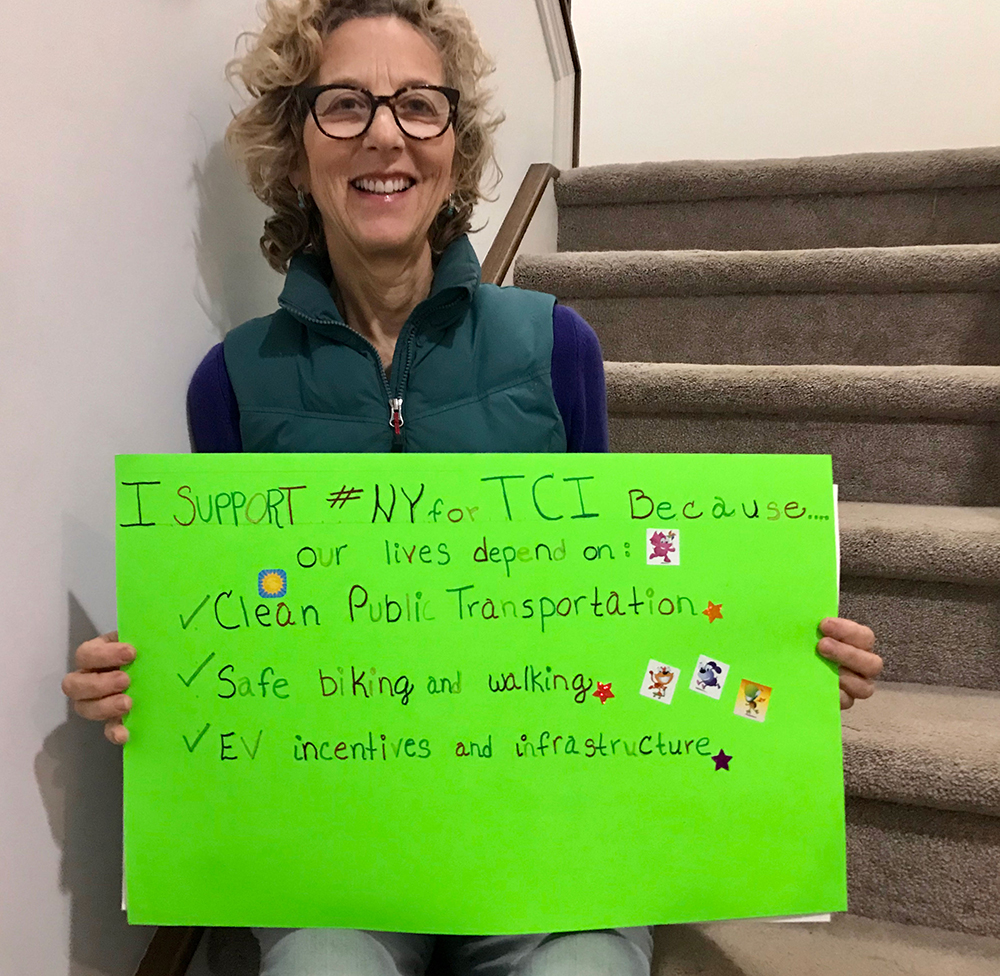 I SUPPORT #NY for TCI Because....
our lives depend on:
✓ Clean Public Transportation
✓ Safe biking and walking
✓ EV incentives and infrastructure